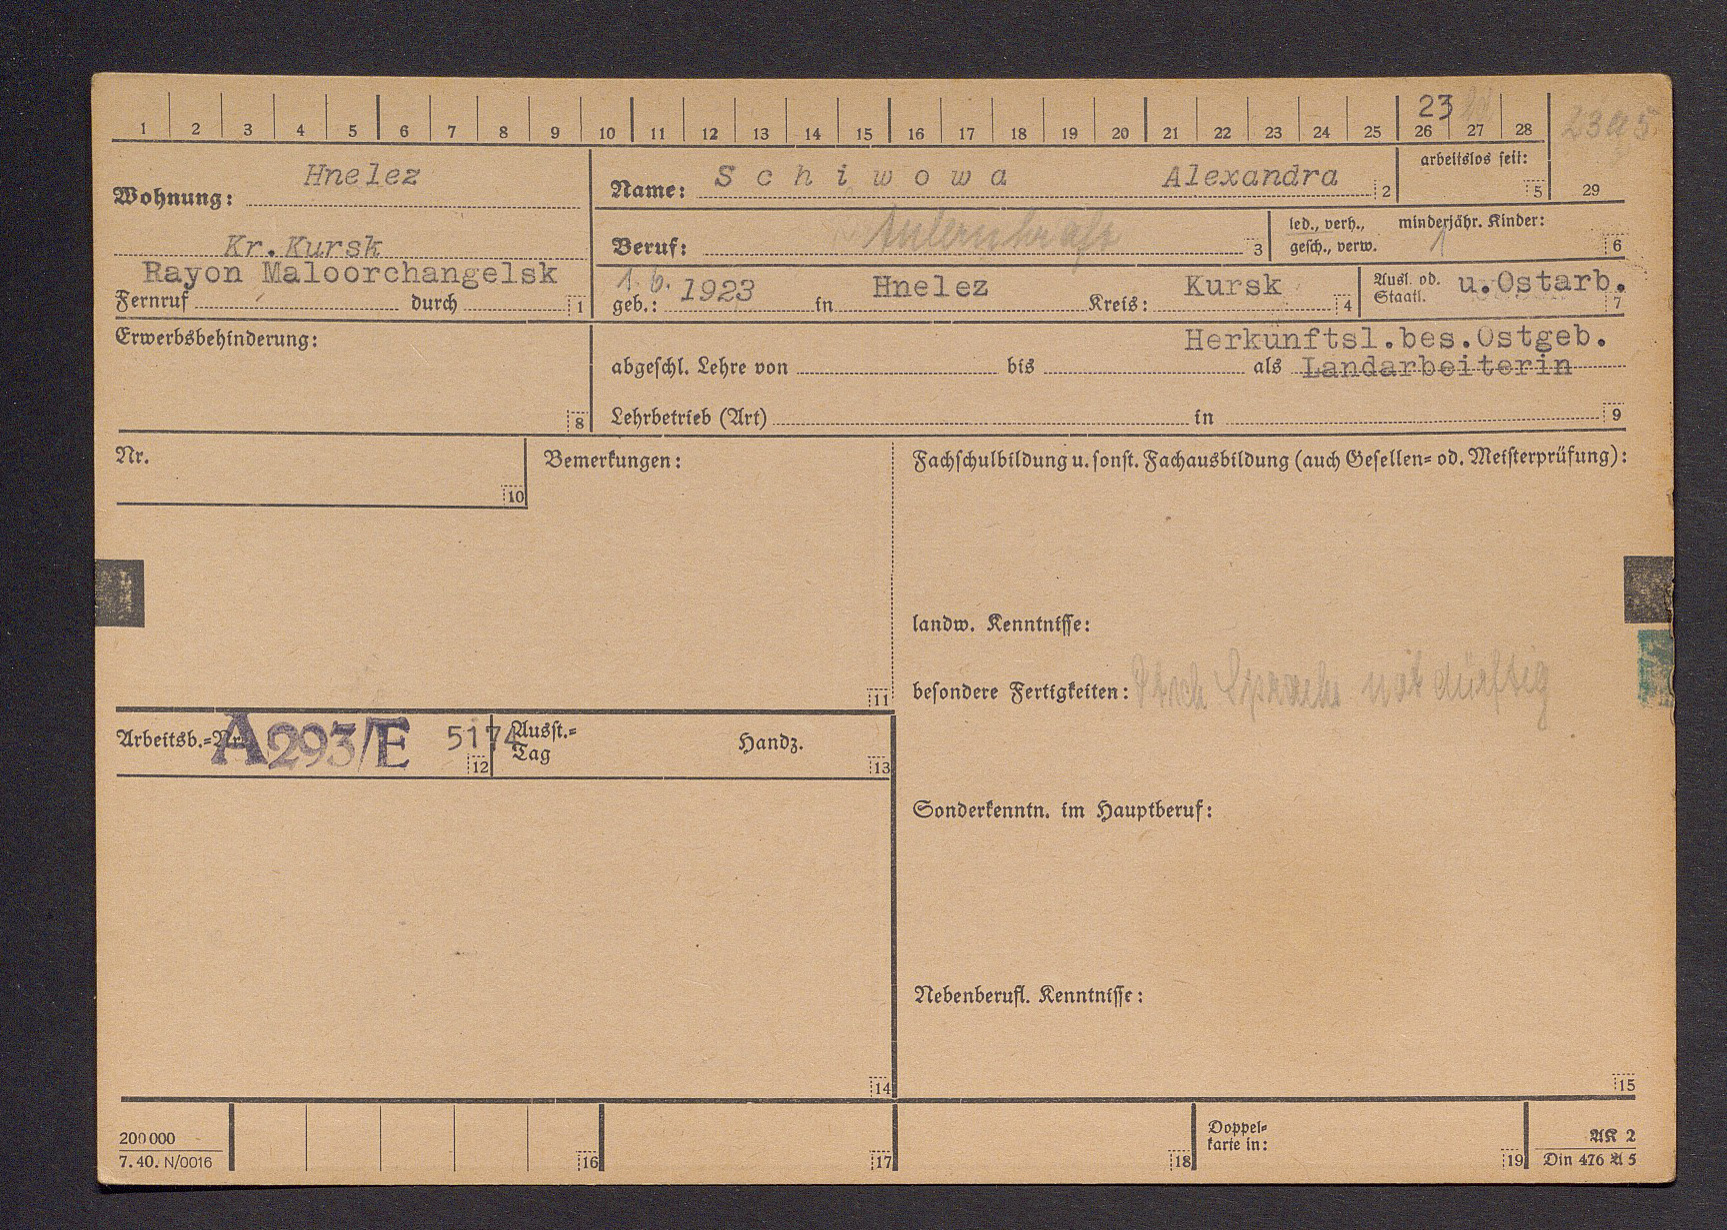 1 2 3 4 5 6 7 8 9 10 11 12 13 14 15 16 17 18 19 20 21 22 23 24 25 26 27 28
23
23a5
Wohnung: Hnelez
Name: Schiwowa Alexandra 2
arbeitslos seit: 5 29
Kr. Kursk
Beruf: Anlernkraft 3
led., verh., gesch., verw. minderjähr. Kinder: 1 6
Rayon Maloorchangelsk
Fernruf durch 1
geb.: 1.6. 1923 in Hnelez Kreis: Kursk 4
Ausl. od. Staatl. u.Ostarb. 7
Erwerbsbehinderung: 8
Herkunftsl.bes.Ostgeb.
abgeschl. Lehre von bis als Landarbeiterin
Lehrbetrieb (Art) in 9
Nr. 10
Bemerkungen: 11
Fachschulbildung u. sonst. Fachausbildung (auch Gesellen= od. Meisterprüfung):
landw. Kenntnisse:
besondere Fertigkeiten: Sprache dürftig
Arbeitsb.=Nr. A293/E 5174 12
Ausst.=Tag Handz. 13
Sonderkenntn. im Hauptberuf:
Nebenberufl. Kenntnisse:
14 15
200000
7. 40. N/0016
16 17 18
Doppel=
karte in: 19
AK 2
Din 476 A 5